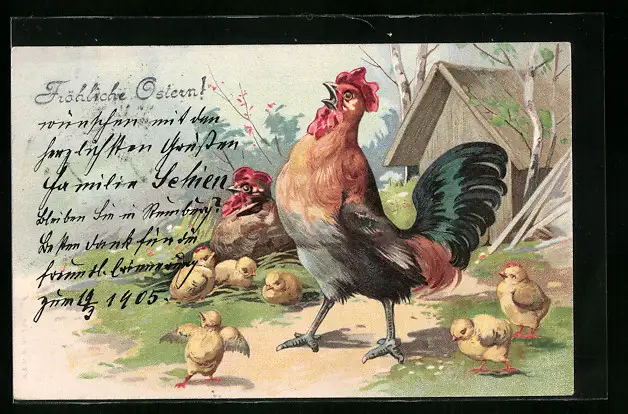 Fröhliche Ostern!
wünschen mit den
herzlichsten Grüßen
Familie Schien
Bleiben Sie in Rumburg?
Besten Dank für die
freundl. Erinnerung
zum 19/3 1905.